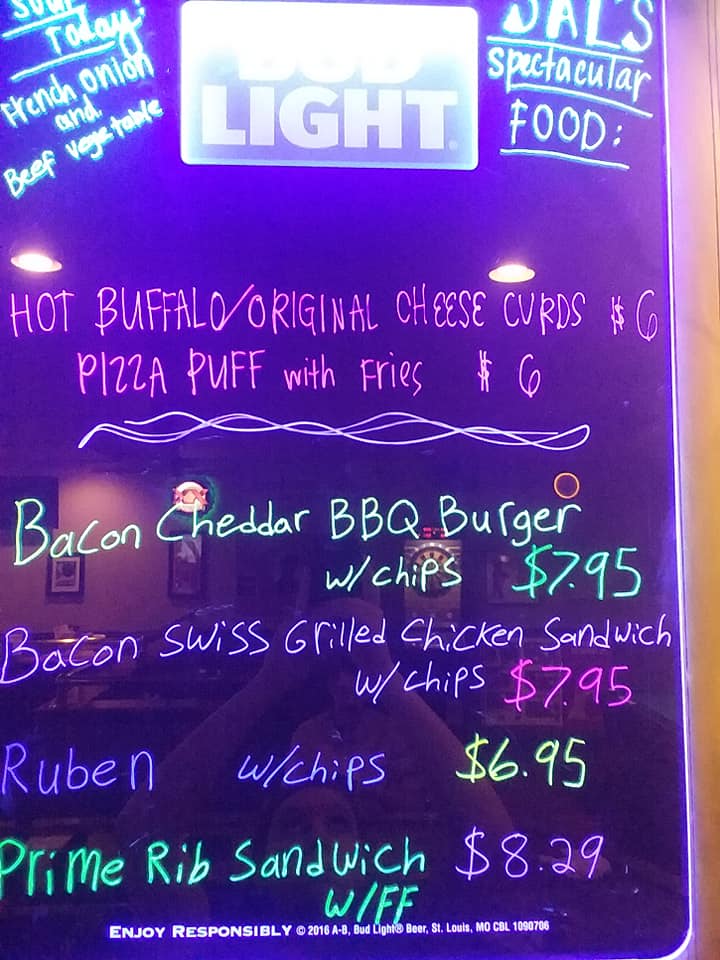 Soup
Today:
French onion
and
Beef Vegetable
BUD
LIGHT
SAL'S
Spectacular
FOOD:
HOT BUFFALO/ORIGINAL CHEESE CURDS $6
PIZZA PUFF with Fries $6
Bacon Cheddar BBQ Burger
w/chips $7.95
Bacon Swiss Grilled Chicken Sandwich
w/chips $7.95
Ruben w/chips $6.95
Prime Rib Sandwich $8.29
w/FF
ENJOY RESPONSIBLY © 2016 A-B, Bud Light® Beer, St. Louis, MO CBL 1090706